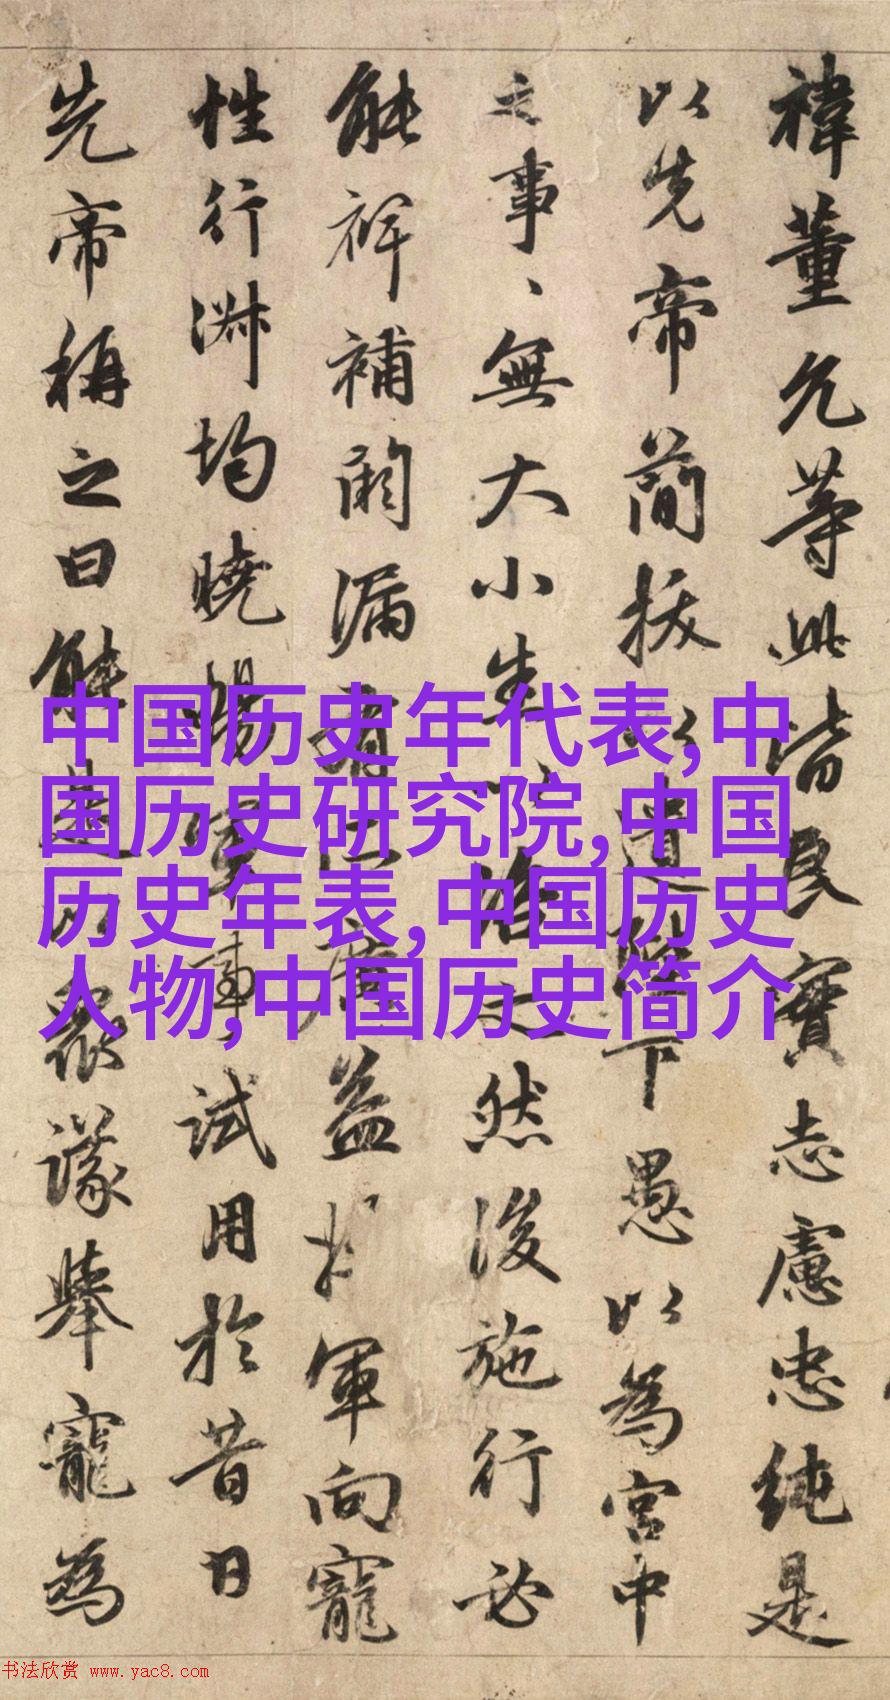 禕董允等此皆良實志慮忠純是
以先帝簡拔以遺陛下愚以為宮中
之事、無大小以諮之然後施行必
能裨補闕漏有所廣益将軍向寵
性行淑均曉暢軍事試用於昔日
先帝稱之曰能是以眾議舉寵為
中国历史年代表,中
国历史研究院,中国
历史年表,中国历史
人物,中国历史简介
书法欣赏 www.yac8.com